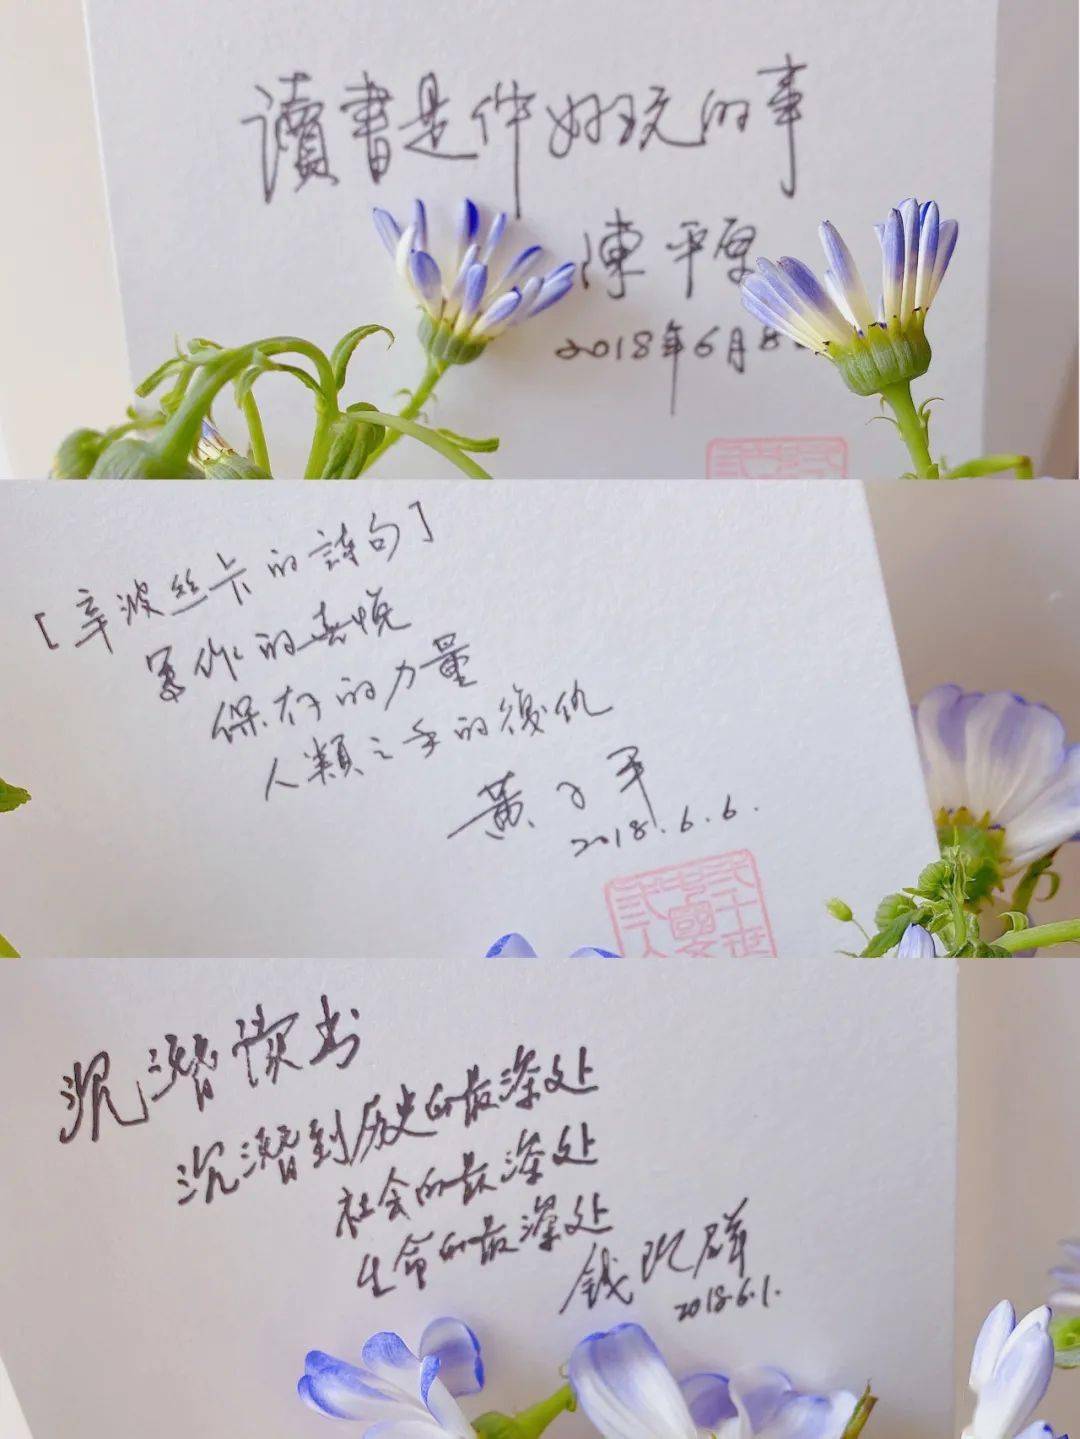 讀書是件好玩的事
陳平原
2018年6月8
[辛波丝卡的詩句]
写作的喜悦
保存的力量
人類之手的復仇
黄子平
2018.6.6.
沉潜读书
沉潜到历史的最深处
社会的最深处
生命的最深处
钱理群
2018.6.1.